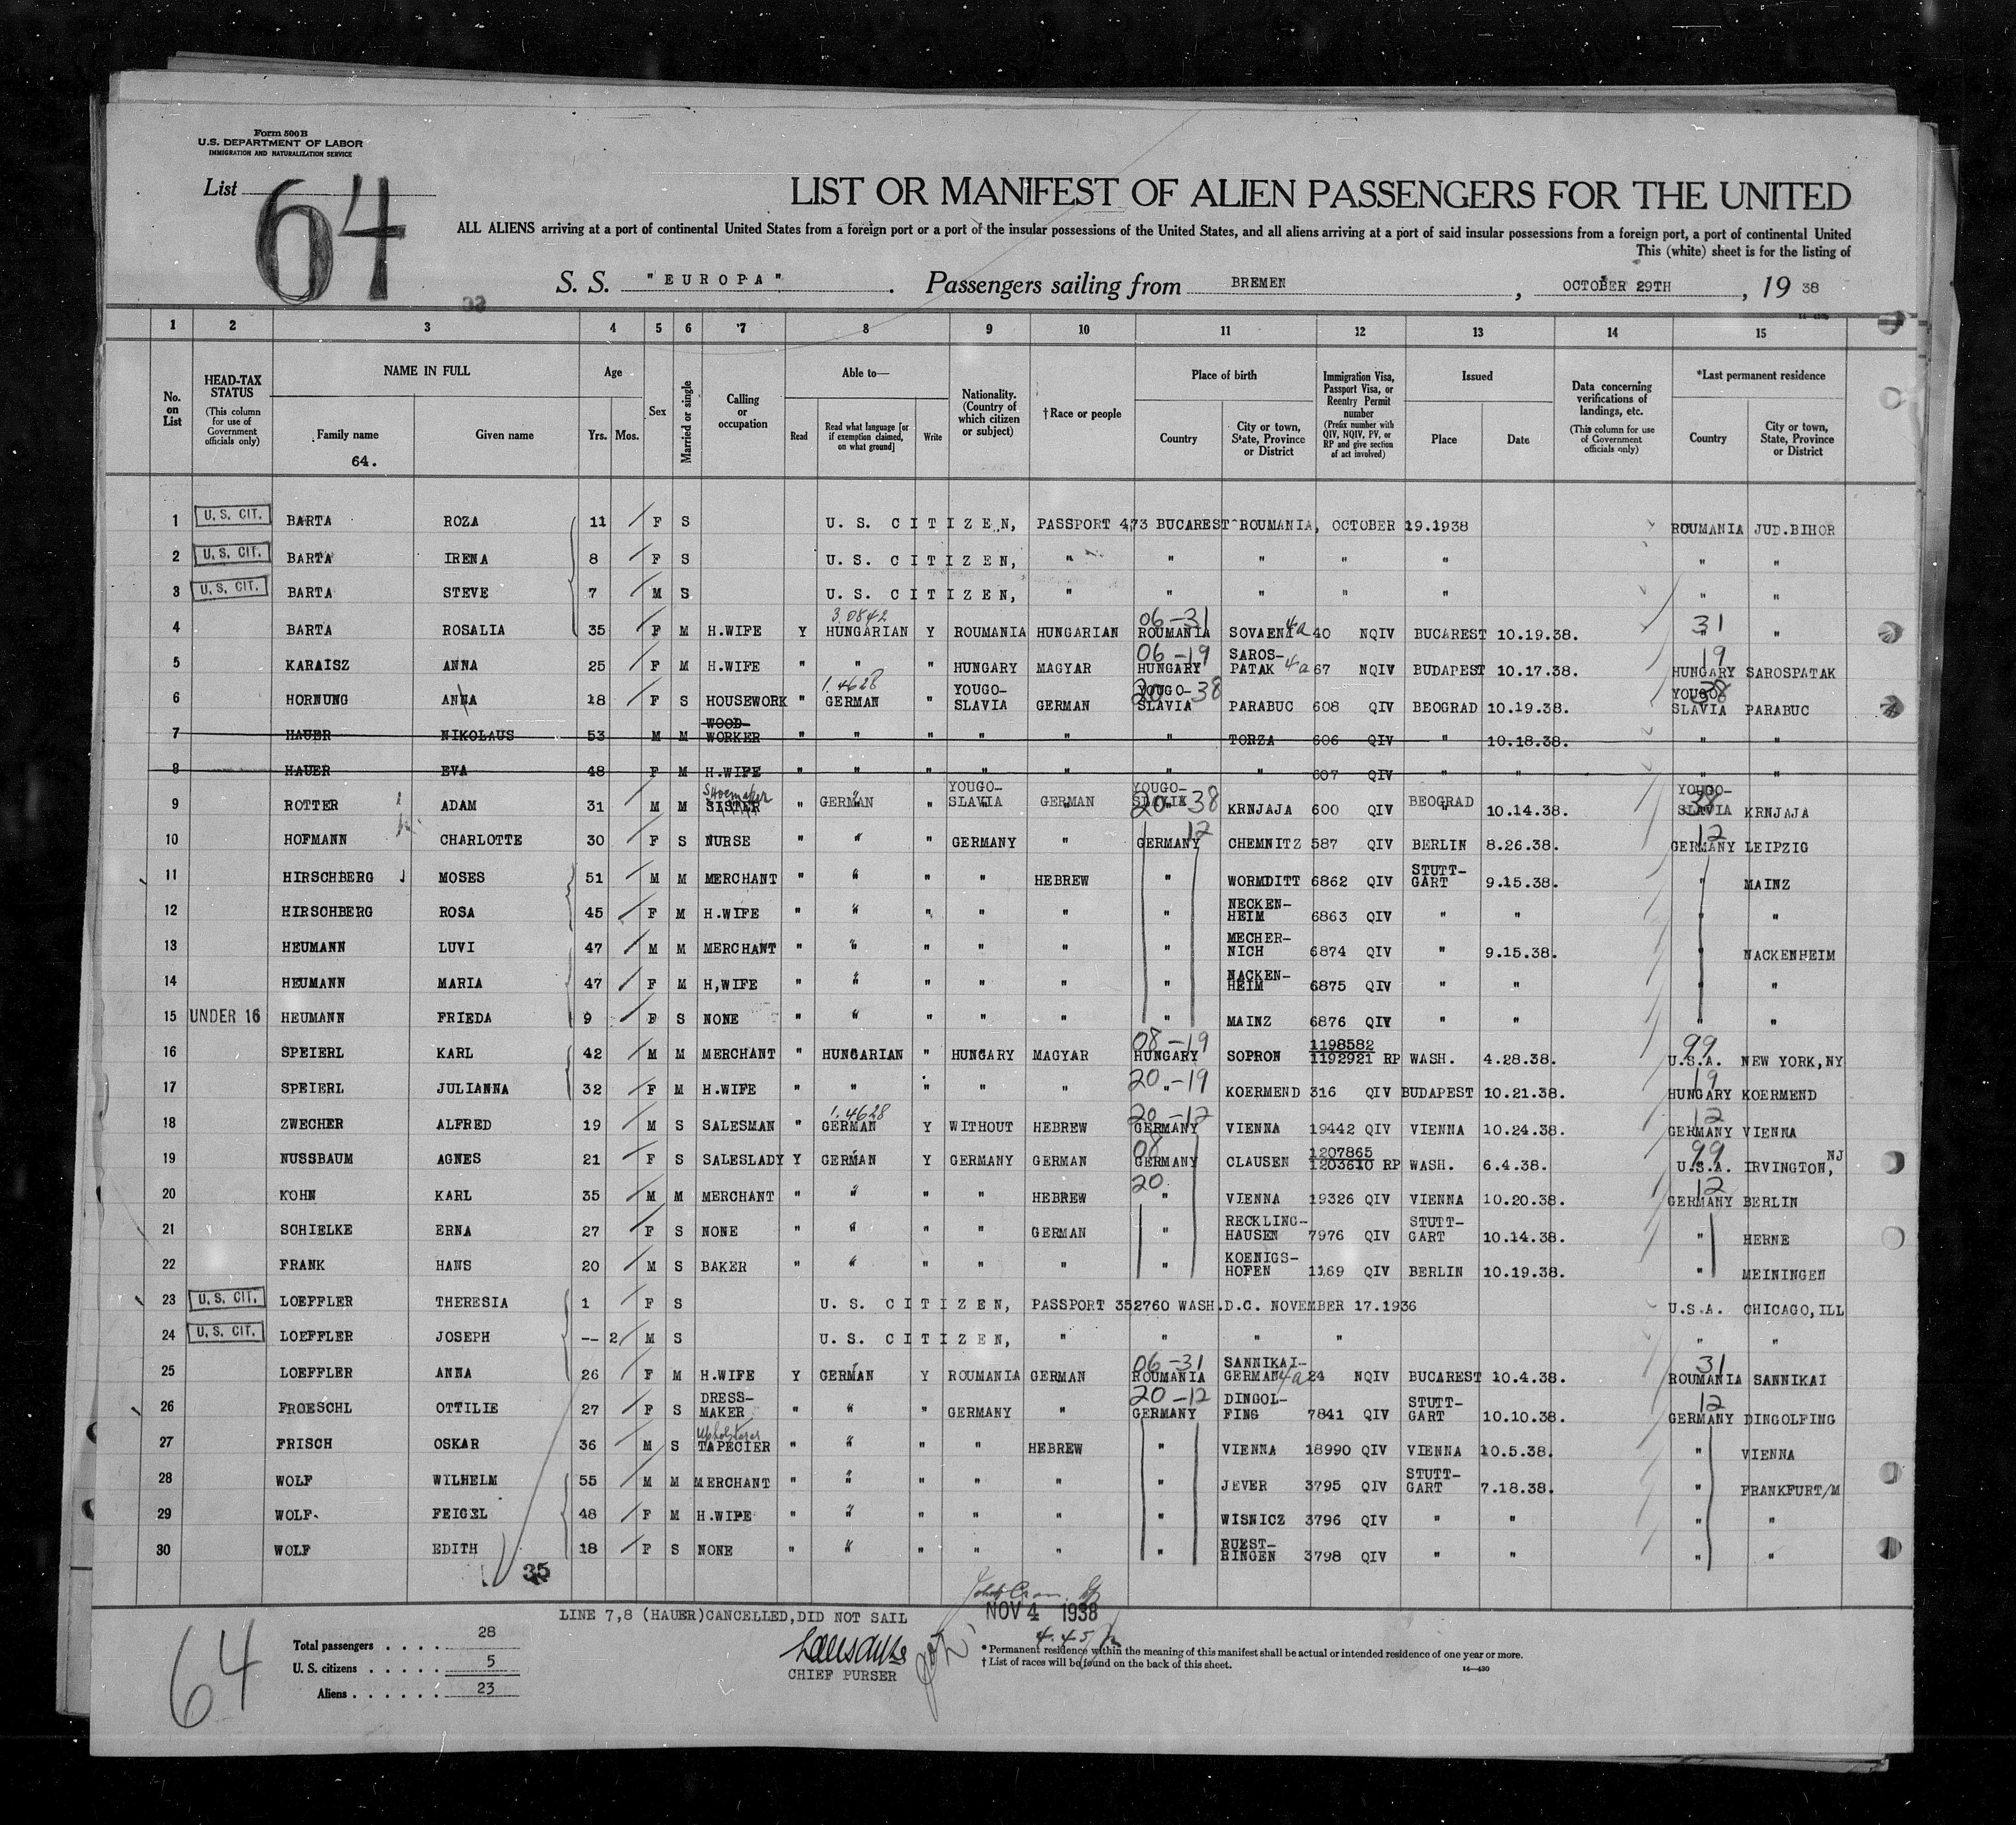 Form 500B
U.S. DEPARTMENT OF LABOR
IMMIGRATION AND NATURALIZATION SERVICE
List 64
LIST OR MANIFEST OF ALIEN PASSENGERS FOR THE UNITED
ALL ALIENS arriving at a port of continental United States from a foreign port or a port of the insular possessions of the United States, and all aliens arriving at a port of said insular possessions from a foreign port, a port of continental United
This (white) sheet is for the listing of
S. S. "EUROPA". Passengers sailing from BREMEN, OCTOBER 29TH, 19 38
1 2 3 4 5 6 7 8 9 10 11 12 13 14 15
No. on List
HEAD-TAX STATUS (This column for use of Government officials only)
NAME IN FULL
Family name Given name
64.
Age
Yrs. Mos.
Sex
Married or single
Calling or occupation
Able to—
Read
Read what language [or if exemption claimed, on what ground]
Write
Nationality. (Country of which citizen or subject)
† Race or people
Place of birth
Country
City or town, State, Province or District
Immigration Visa, Passport Visa, or Reentry Permit number (Prefix number with QIV, NQIV, PV, or RP and give section of act involved)
Issued
Place Date
Data concerning verifications of landings, etc. (This column for use of Government officials only)
*Last permanent residence
Country
City or town, State, Province or District
1 U. S. CIT. BARTA ROZA 11 F S U. S. CITIZEN, PASSPORT 473 BUCAREST ROUMANIA, OCTOBER 19.1938 ROUMANIA JUD.BIHOR
2 U. S. CIT. BARTA IRENA 8 F S U. S. CITIZEN, " " " " " " "
3 U. S. CIT. BARTA STEVE 7 M S U. S. CITIZEN, " " " " " " "
3.0842 06-31 4a 31
4 BARTA ROSALIA 35 F M H.WIFE Y HUNGARIAN Y ROUMANIA HUNGARIAN ROUMANIA SOVAENI 40 NQIV BUCAREST 10.19.38. " "
06-19 4a 19
5 KARAISZ ANNA 25 F M H.WIFE " " " HUNGARY MAGYAR HUNGARY SAROS-PATAK 67 NQIV BUDAPEST 10.17.38. HUNGARY SAROSPATAK
1.4628 20-38 38
6 HORNUNG ANNA 18 F S HOUSEWORK " GERMAN " YOUGO-SLAVIA GERMAN YOUGO-SLAVIA PARABUC 608 QIV BEOGRAD 10.19.38. YOUGO-SLAVIA PARABUC
7 HAUER NIKOLAUS 53 M M WOOD-WORKER " " " " " " TORZA 606 QIV " 10.18.38. " "
8 HAUER EVA 48 F M H.WIFE " " " " " " " 607 QIV " " " "
Shoemaker 20-38 38
9 ROTTER ADAM 31 M M SISTER " GERMAN " YOUGO-SLAVIA GERMAN YOUGO-SLAVIA KRNJAJA 600 QIV BEOGRAD 10.14.38. YOUGO-SLAVIA KRNJAJA
12 12
10 HOFMANN CHARLOTTE 30 F S NURSE " " " GERMANY " GERMANY CHEMNITZ 587 QIV BERLIN 8.26.38. GERMANY LEIPZIG
11 HIRSCHBERG MOSES 51 M M MERCHANT " " " " HEBREW " WORMDITT 6862 QIV STUTT-GART 9.15.38. " MAINZ
12 HIRSCHBERG ROSA 45 F M H.WIFE " " " " " " NECKEN-HEIM 6863 QIV " " " "
13 HEUMANN LUVI 47 M M MERCHANT " " " " " " MECHER-NICH 6874 QIV " 9.15.38. " NACKENHEIM
14 HEUMANN MARIA 47 F M H,WIFE " " " " " " NACKEN-HEIM 6875 QIV " " " "
15 UNDER 16 HEUMANN FRIEDA 9 F S NONE " " " " " " MAINZ 6876 QIV " " " "
08-19 99
16 SPEIERL KARL 42 M M MERCHANT " HUNGARIAN " HUNGARY MAGYAR HUNGARY SOPRON 1198582 1192921 RP WASH. 4.28.38. U.S.A. NEW YORK,NY
20-19 19
17 SPEIERL JULIANNA 32 F M H.WIFE " " " " " " KOERMEND 316 QIV BUDAPEST 10.21.38. HUNGARY KOERMEND
1.4628 20-12 12
18 ZWECHER ALFRED 19 M S SALESMAN " GERMAN Y WITHOUT HEBREW GERMANY VIENNA 19442 QIV VIENNA 10.24.38. GERMANY VIENNA
08 99
19 NUSSBAUM AGNES 21 F S SALESLADY Y GERMAN Y GERMANY GERMAN GERMANY CLAUSEN 1207865 1203610 RP WASH. 6.4.38. U.S.A. IRVINGTON, NJ
20 12
20 KOHN KARL 35 M M MERCHANT " " " " HEBREW " VIENNA 19326 QIV VIENNA 10.20.38. GERMANY BERLIN
21 SCHIELKE ERNA 27 F S NONE " " " " GERMAN " RECKLING-HAUSEN 7976 QIV STUTT-GART 10.14.38. " HERNE
22 FRANK HANS 20 M S BAKER " " " " " " KOENIGS-HOFEN 1169 QIV BERLIN 10.19.38. " MEININGEN
23 U. S. CIT. LOEFFLER THERESIA 1 F S U. S. CITIZEN, PASSPORT 352760 WASH.D.C. NOVEMBER 17.1936 U.S.A. CHICAGO,ILL
24 U. S. CIT. LOEFFLER JOSEPH -- 2 M S U. S. CITIZEN, " " " " " "
06-31 4a 31
25 LOEFFLER ANNA 26 F M H.WIFE Y GERMAN Y ROUMANIA GERMAN ROUMANIA SANNIKAI-GERMAN 24 NQIV BUCAREST 10.4.38. ROUMANIA SANNIKAI
20-12 12
26 FROESCHL OTTILIE 27 F S DRESS-MAKER " " " GERMANY " GERMANY DINGOL-FING 7841 QIV STUTT-GART 10.10.38. GERMANY DINGOLFING
Upholsterer
27 FRISCH OSKAR 36 M S TAPECIER " " " " HEBREW " VIENNA 18990 QIV VIENNA 10.5.38. " VIENNA
28 WOLF WILHELM 55 M M MERCHANT " " " " " " JEVER 3795 QIV STUTT-GART 7.18.38. " FRANKFURT/M
29 WOLF FEIGEL 48 F M H.WIFE " " " " " " WISNICZ 3796 QIV " " " "
30 WOLF EDITH 18 F S NONE " " " " " " RUEST-RINGEN 3798 QIV " " " "
35
LINE 7,8 (HAUER)CANCELLED,DID NOT SAIL
NOV 4 1938
4.45
64
Total passengers . . . . 28
U. S. citizens . . . . . 5
Aliens . . . . . . 23
CHIEF PURSER
* Permanent residence within the meaning of this manifest shall be actual or intended residence of one year or more.
† List of races will be found on the back of this sheet.
14—430